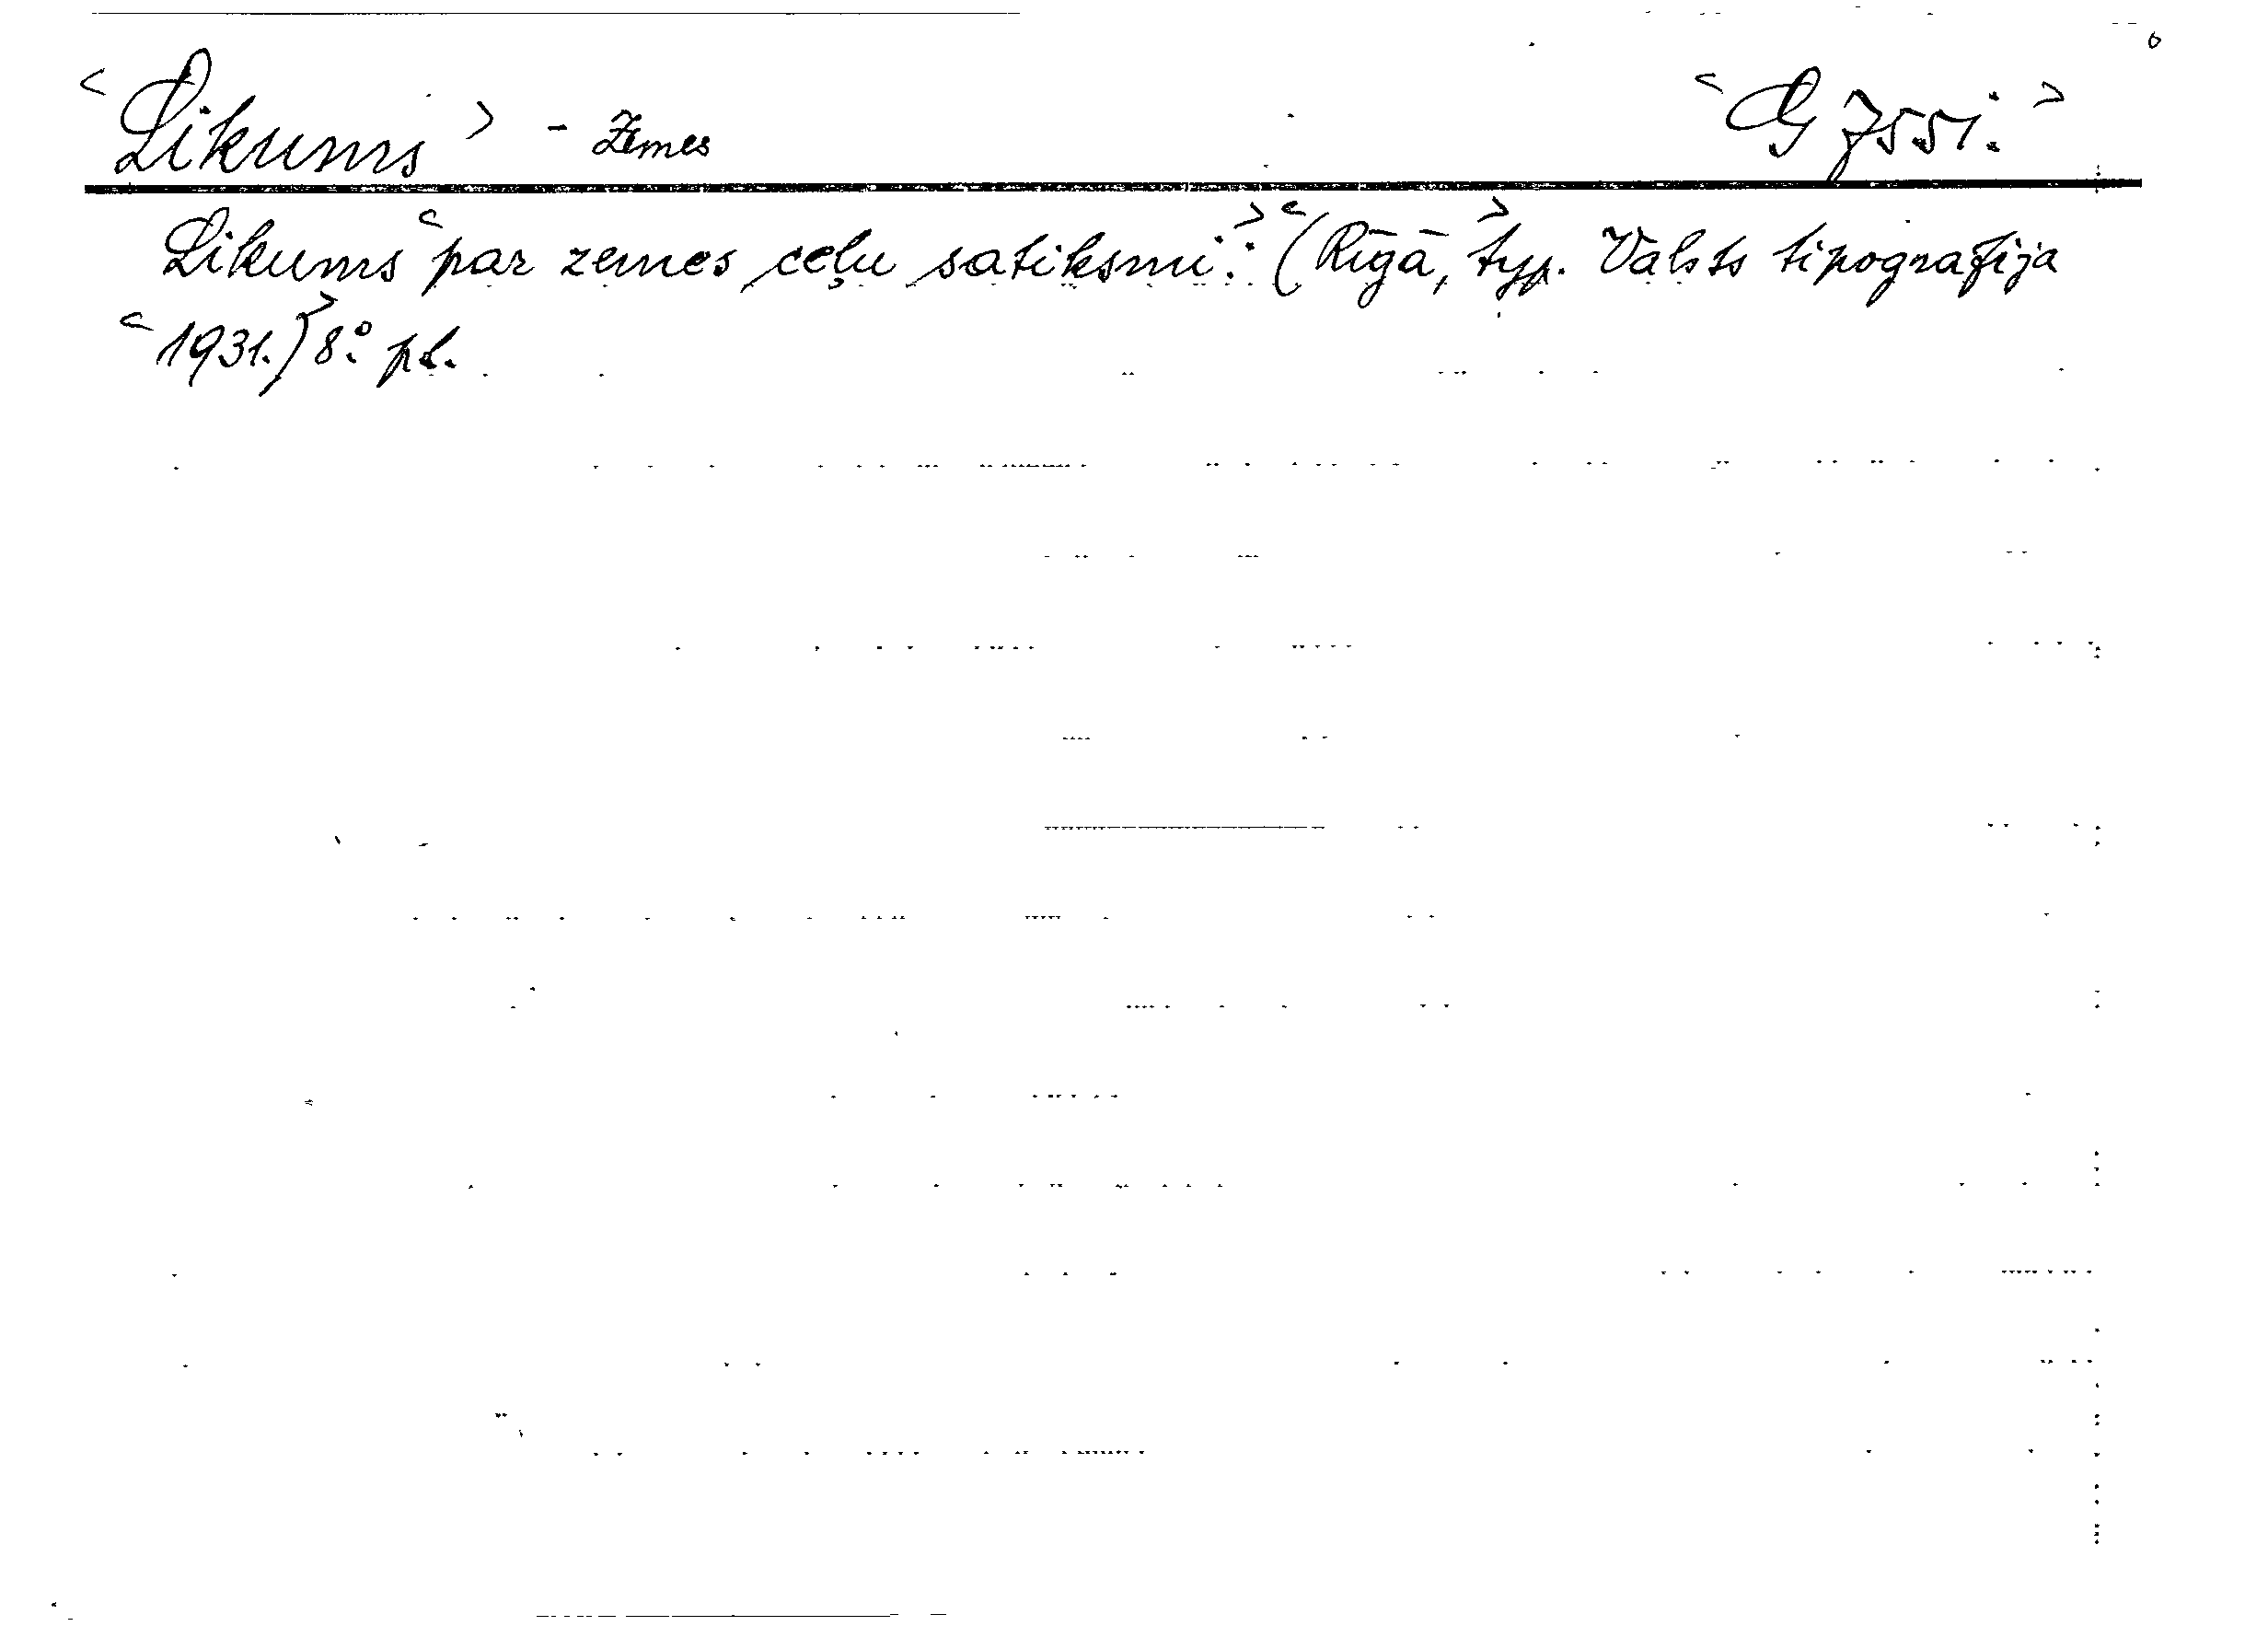 <Likums> - Zemes <G 7551.>
Likums <par zemes ceļu satiksmi.:> <(Rīgā,> typ. Valsts tipografija
<1931.)> 8º. pl.